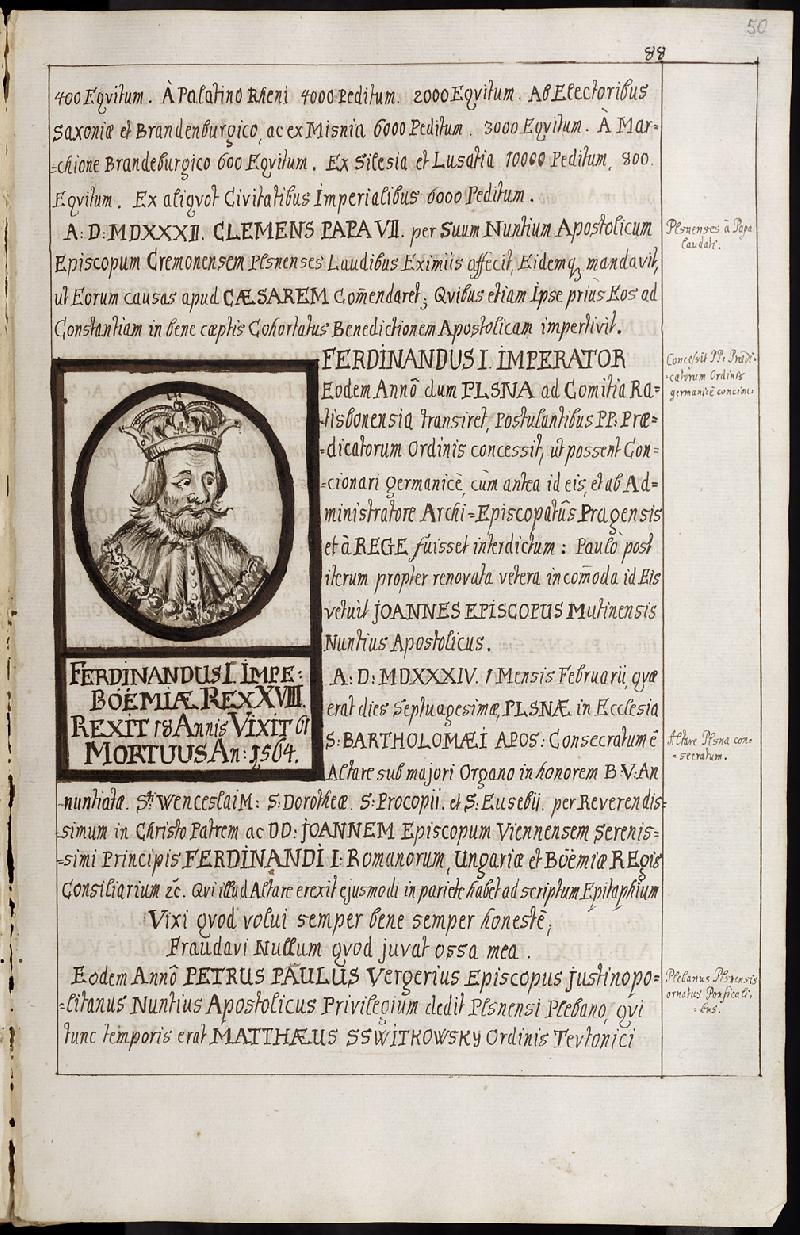 50
88
400 Eqvitum. À Palatino Rheni 4000 Peditum. 2000 Eqvitum. Ab Electoribus
Saxoniæ et Brandenburgico, ac ex Misnia 6000 Peditum. 3000 Eqvitum. À Mar=
=chione Brandeburgico 600 Eqvitum. Ex Silesia et Lusatia 10000 Peditum, 800.
Eqvitum. Ex aliqvot Civitatibus Imperialibus 6000 Peditum.
A: D: MDXXXII. CLEMENS PAPA VII. per Suum Nuntium Apostolicum
Episcopum Cremonensem Plsnenses Laudibus Eximiis affecit, Eidemq3 mandavit,
ut Eorum causas apud CÆSAREM Com̃endaret; Qvibus etiam Ipse prius Eos ad
Constantiam in bene cæptis Cohortatus Benedictionem Apostolicam impertivit.
Plsnenses à Papa
laudati.
FERDINANDUS I. IMPERATOR
Eodem Annô dum PLSNA ad Comitia Ra=
=tisbonensia transiret, Postulantibus PP. Præ=
=dicatorum Ordinis concessit, ut possent Con=
=cionari germanicè, cùm antea id eis, et ab Ad=
=ministratore Archi=Episcopatûs Pragensis
et à REGE fuisset interdictum: Paulò post
iterum propter renovata vetera incom̃oda id Eis
vetuit JOANNES EPISCOPUS Mutinensis
Nuntius Apostolicus.
Concessit PP. Prædi=
=catorum Ordinis
germanicè concina:
FERDINANDUS I. IMPE:
BOËMIÆ REX XVIII.
REXIT 18 Annis VIXIT 61
MORTUUS An: 1564.
A: D: MDXXXIV. 1 Mensis Februarii, qvæ
erat dies Septuagesimæ, PLSNÆ in Ecclesia
S: BARTHOLOMÆI APOS: Consecratum ẽ
Altare sub majori Organo in honorem B: V: An
=nuntiatæ. Sti Wenceslai M: S: Dorotheæ. S: Procopii. et S: Eusebii. per Reverendis=
=simum in Christo Patrem ac DD: JOANNEM Episcopum Viennensem serenis=
=simi Principis FERDINANDI I: Romanorum, Ungariæ et Boëmiæ REgis
Consiliarium &c. Qvi illud Altare erexit ejusmodi in pariete habet ad scriptum Epitaphium
Altare Plsnæ con=
=secratum.
Vixi qvod volui semper bene semper honestè,
Fraudavi Nullum qvod juvat ossa mea.
Eodem Annô PETRUS PAULUS Vergerius Episcopus Justinopo=
=litanus Nuntius Apostolicus Privilegium dedit Plsnensi Plebano, qvi
tunc temporis erat MATTHÆUS SSWITKOWSKY Ordinis Tevtonici
Plebanus Plsnensis
ornatus Ponficali=
=bus.